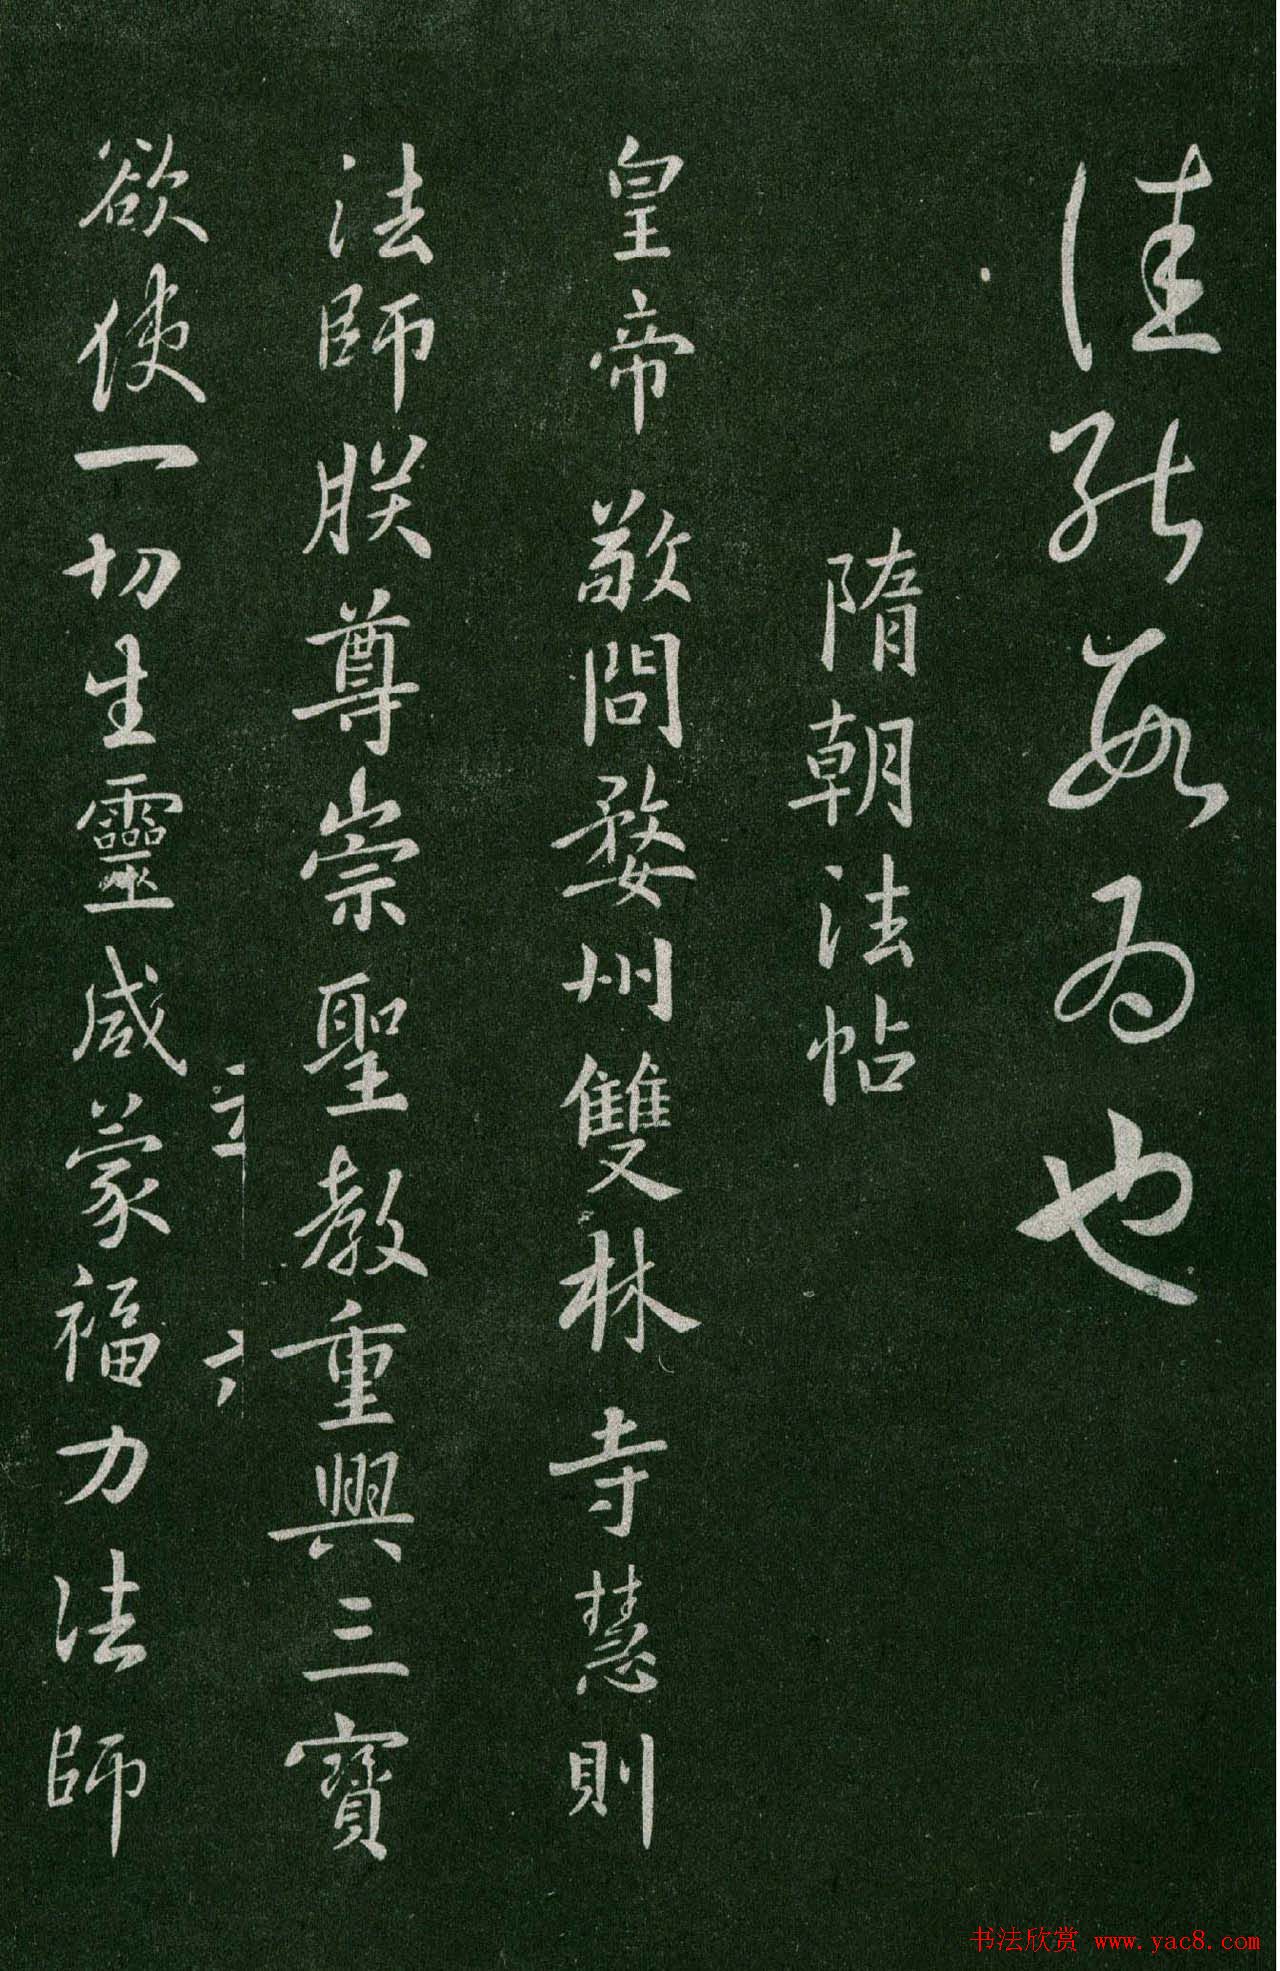 佳能為也
隋朝法帖
皇帝敬問婺州雙林寺慧則
法師朕尊崇聖教重興三寶
欲使一切生靈咸蒙福力法師
书法欣赏 www.yac8.com